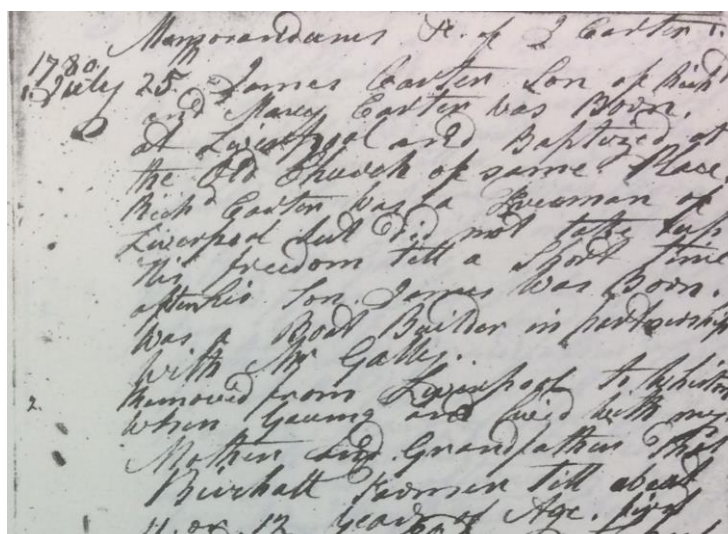 Memorandums &c. of J Carter
1780.
1. July 25th James Carter Son of Richd
and Mary Carter was Born,
at Liverpool and Baptized at
the Old Church of same Place.
Richd Carter was a Freeman of
Liverpool but did not take up
his freedom till a Short time
after his Son James was Born.
was a Boat Builder in partnership
with Mr Galley.
2. Removed from Liverpool to Whiston
when young and livd with my
Mother and Grandfather Thos
Birchall Farmer till about
11. or 12 Years of Age. first